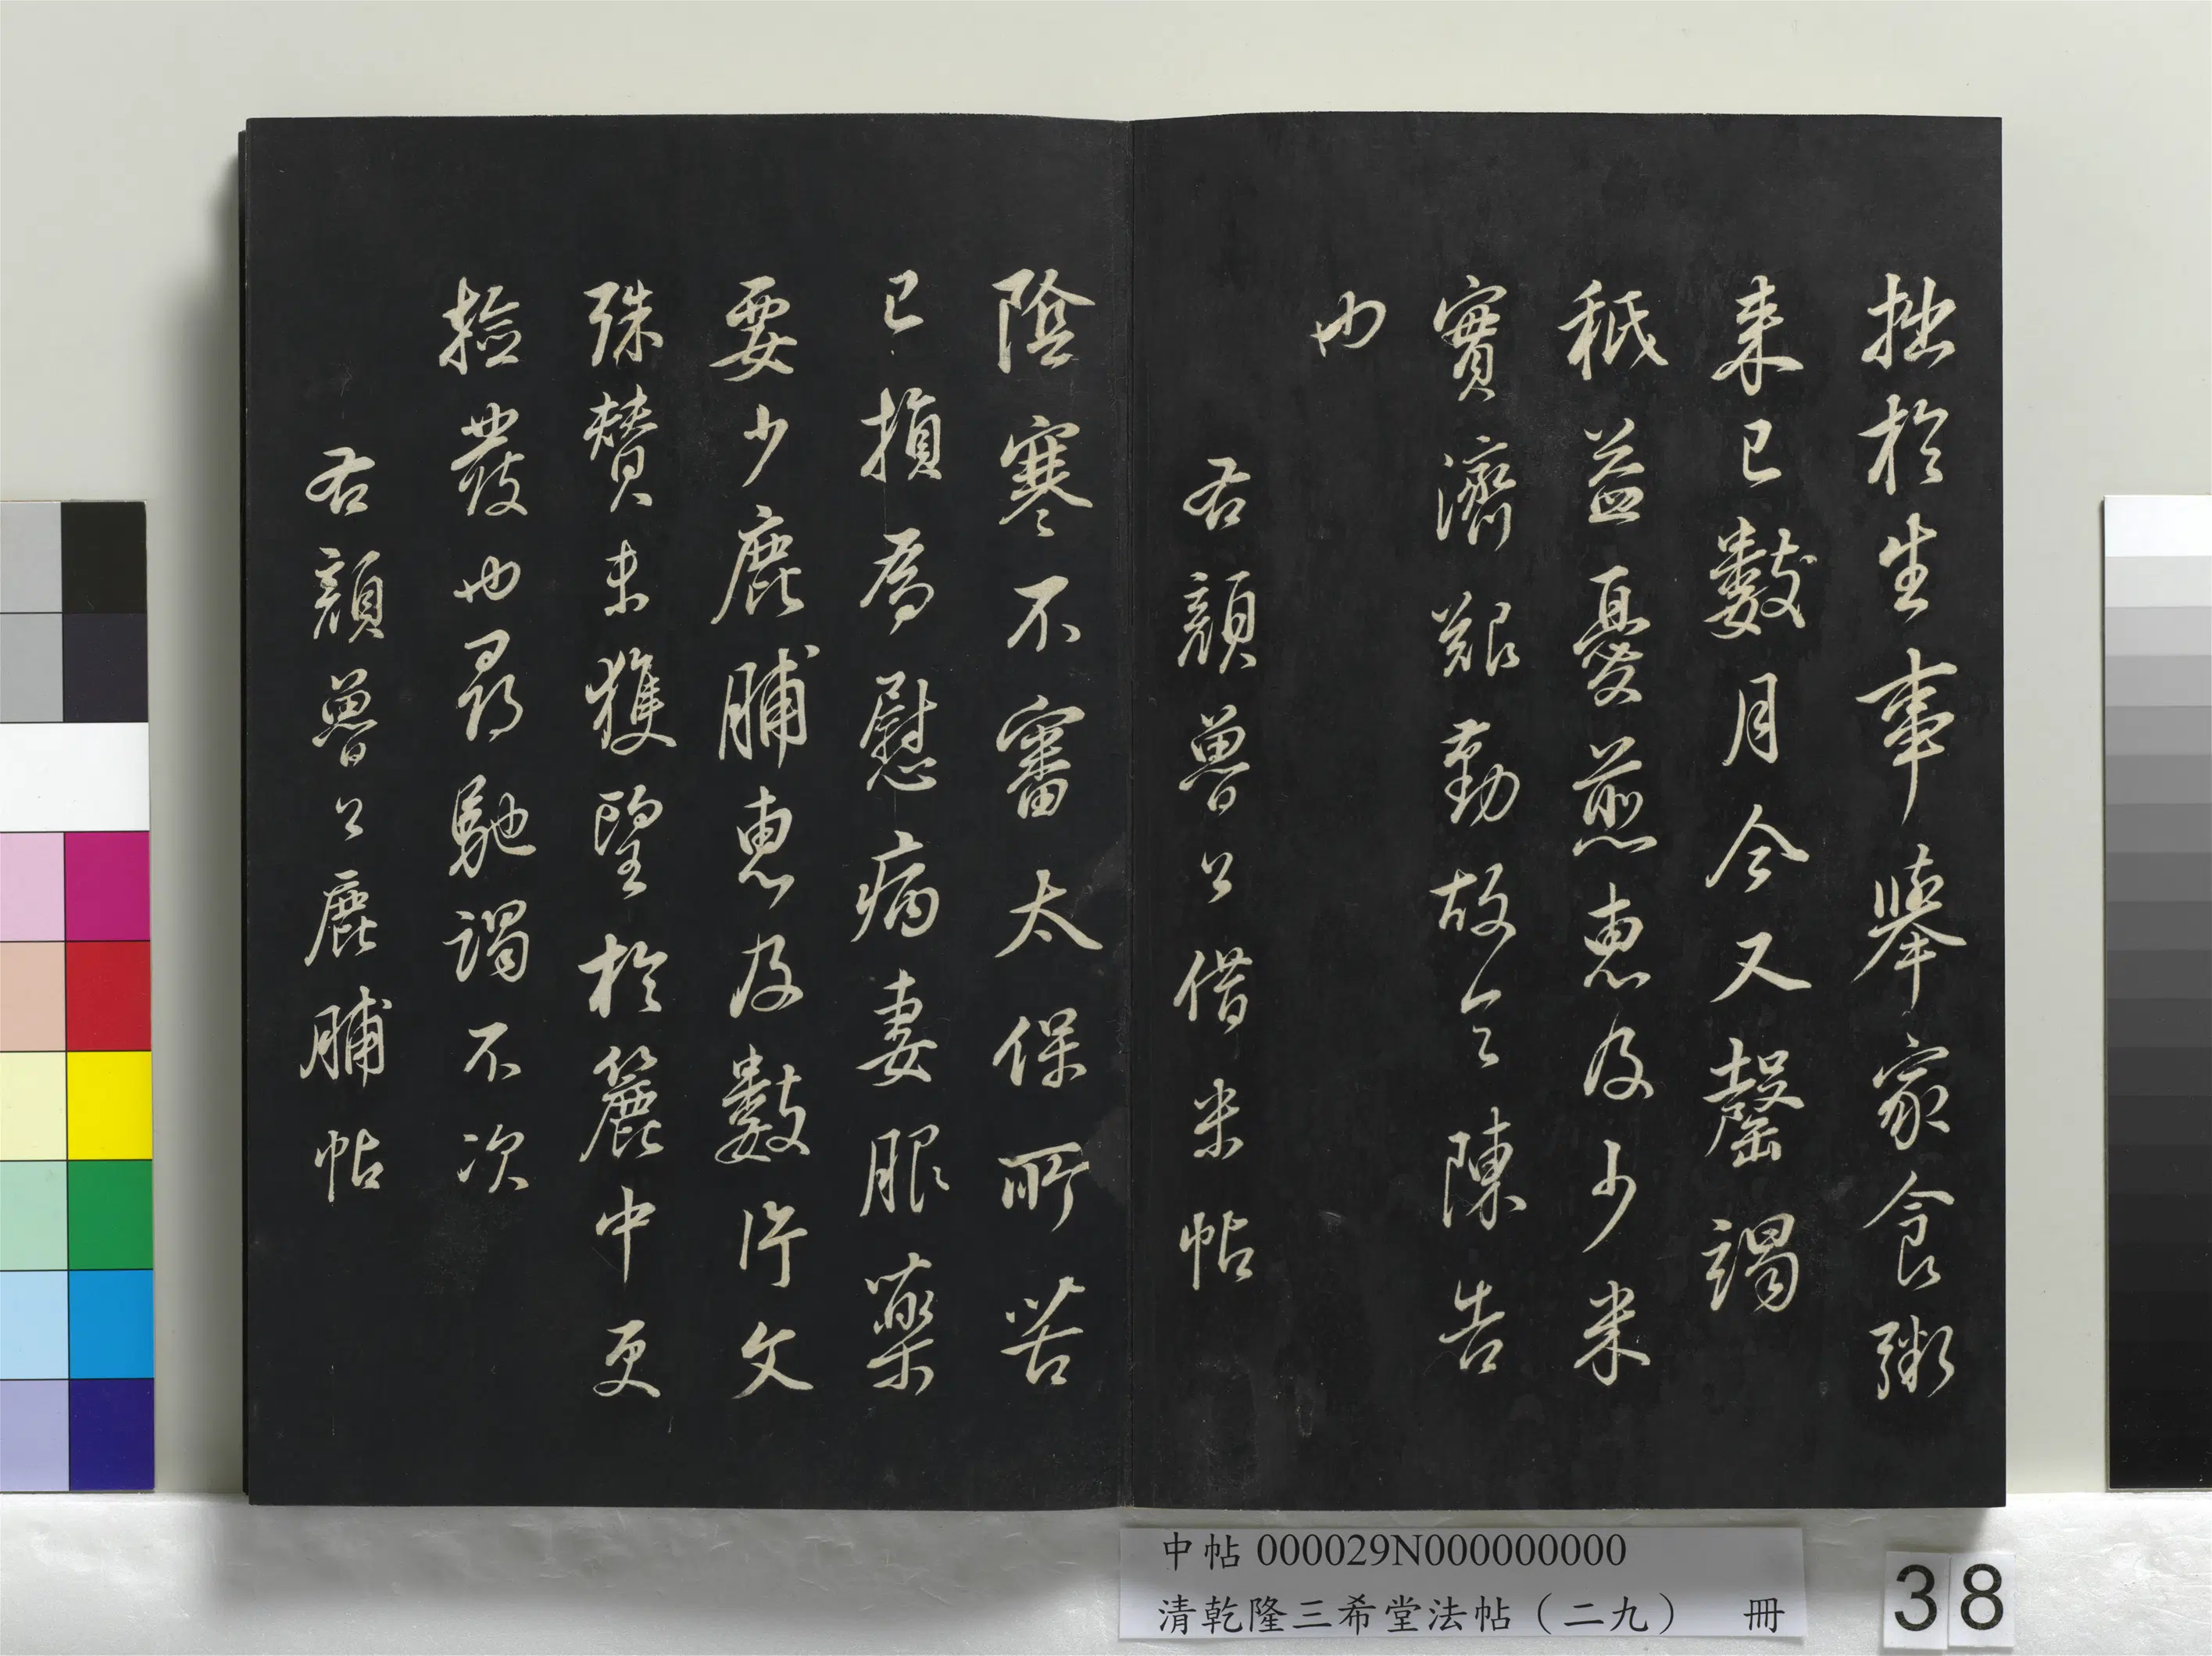 拙於生事舉家食粥
来已數月今又罄竭
秖益憂煎惠及少米
實濟艱勤故令陳告
也
右顏魯公借米帖
陰寒不審太保所苦
已損為慰病妻服藥
要少鹿脯惠及數片文
殊贊未獲望於簏中更
撿發也尋馳謁不次
右顏魯公鹿脯帖
中帖 000029N000000000
清乾隆三希堂法帖（二九） 冊
38